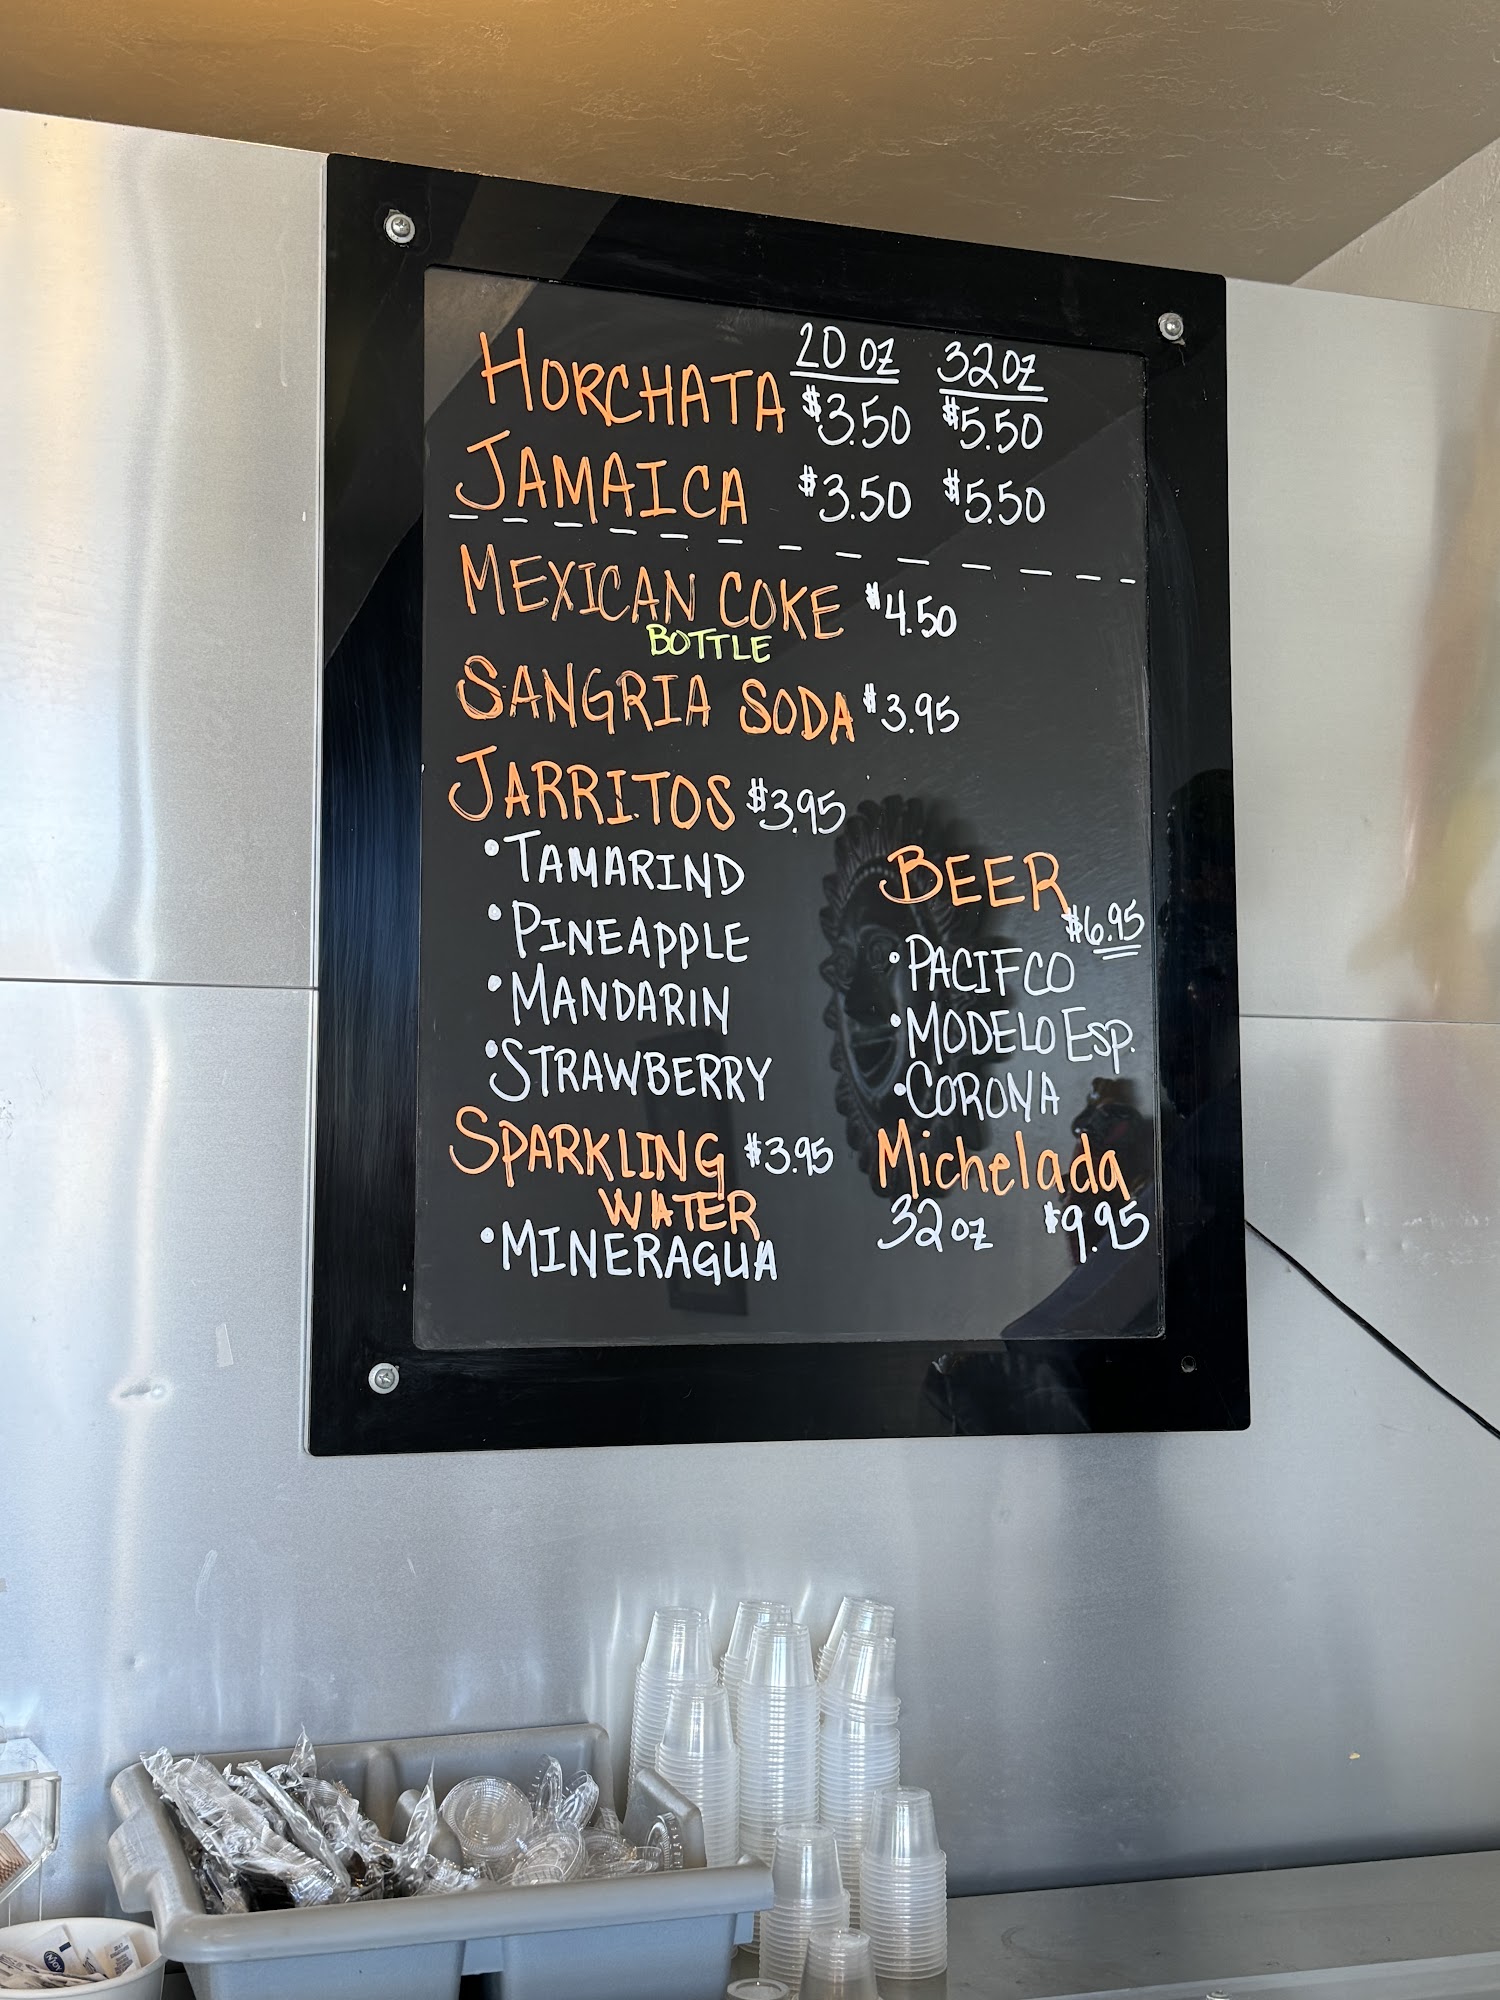 20 oz 32 oz
HORCHATA $3.50 $5.50
JAMAICA $3.50 $5.50
MEXICAN COKE $4.50
BOTTLE
SANGRIA SODA $3.95
JARRITOS $3.95
• TAMARIND
• PINEAPPLE
• MANDARIN
• STRAWBERRY
SPARKLING $3.95
WATER
• MINERAGUA
BEER
$6.95
• PACIFCO
• MODELO ESP.
• CORONA
Michelada
32 oz $9.95